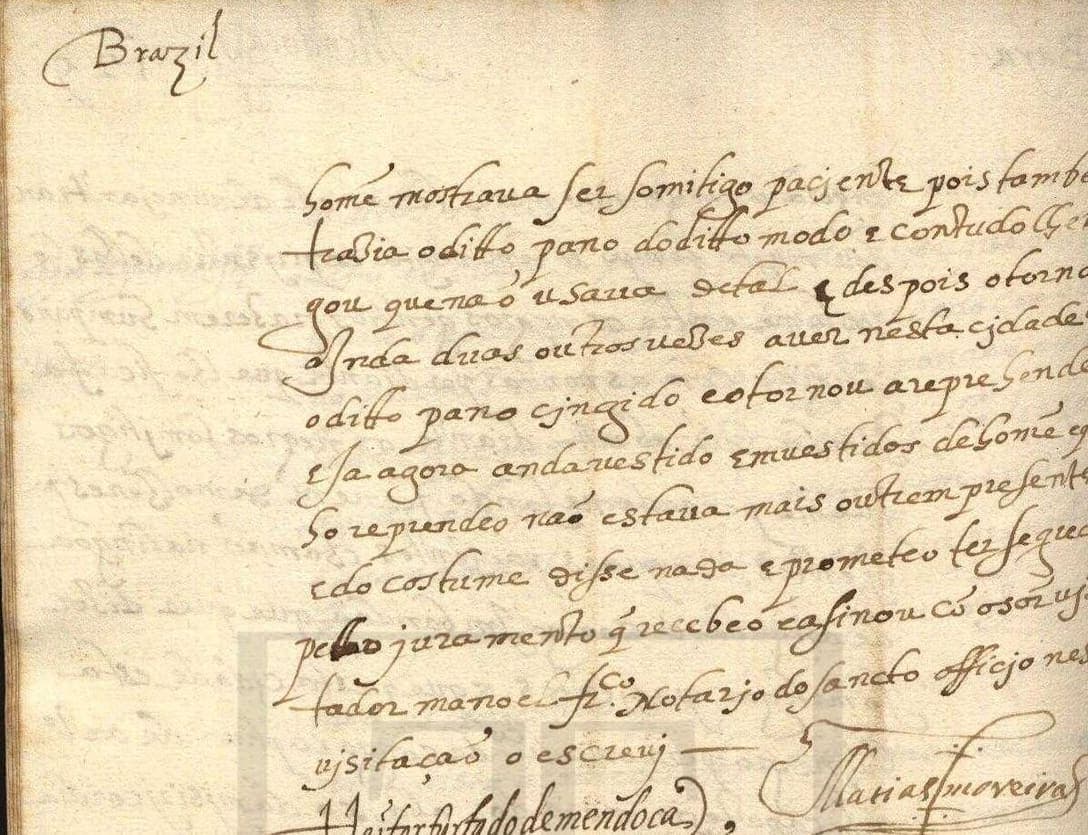 Brazil
home mostrava ser somitigo pacjente pois tambe
trazia o ditto pano do ditto modo e contudo lhe
gou que não usava de tal e despois o torno
ajnda duas outros vezes aver nesta cjdade
o ditto pano cjngido e o tornou a reprehende
e Ja agora anda vestido em vestidos de home e q
ho reprendeo não estava mais outrem presente
e do costume disse nada e prometeo ter segre
pello juramento q̃ recebeo e asinou cõ o sõr vis
tador manoel frco Notarjo do sancto officjo nes
visitação o escrevj
Heitor furtado de mendoça
Matias moreira